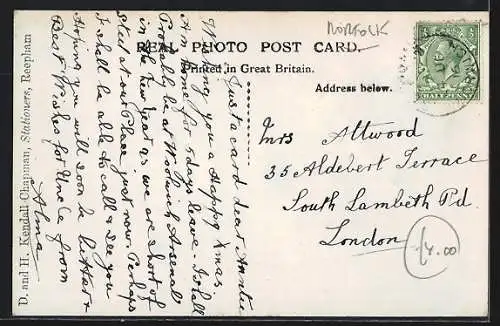 NORFOLK
REAL PHOTO POST CARD.
Printed in Great Britain.
Address below.
Just a card dear Auntie
Wishing you a Happy Xmas.
Am home for 5 days leave. I shall
Probably be at Woolwich Arsenal
in the New Year as we are short of
steel at our Place just now. Perhaps
I shall be able to call & see you
Hoping you will soon be better
Best Wishes for Uncle from
Alma
Mrs Attwood
35 Aldebert Terrace
South Lambeth Rd
London
4.00
D. and H. Kendall Chapman, Stationers, Reepham